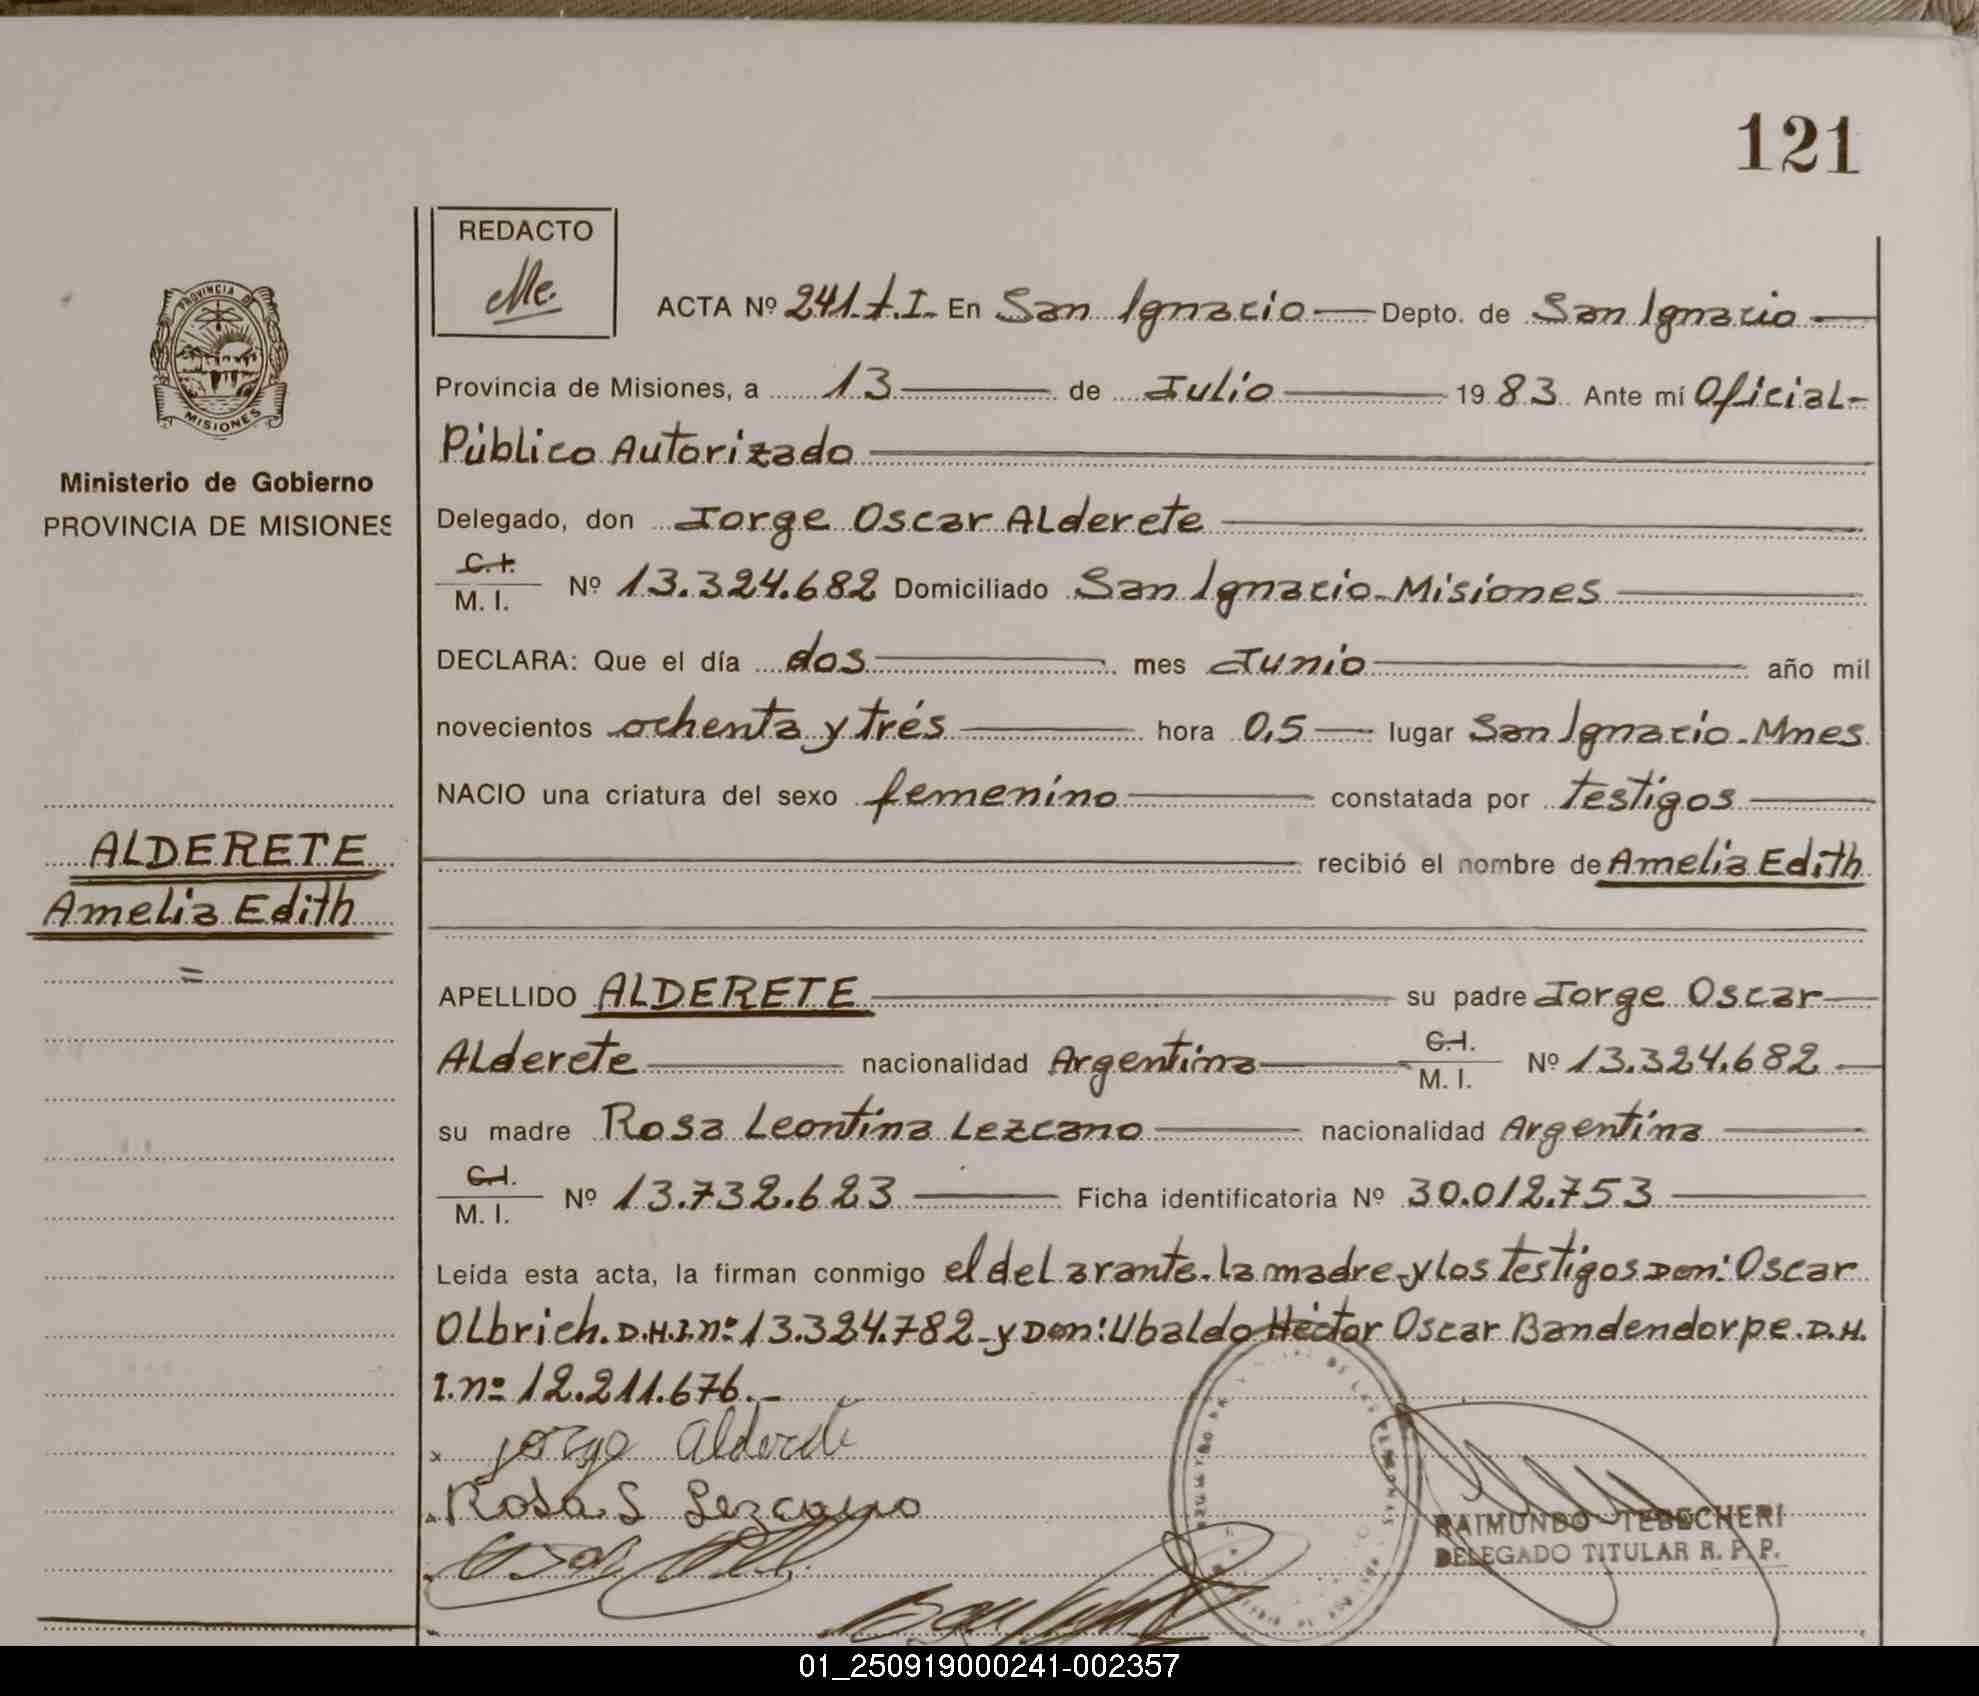 121
REDACTO
Me.
PROVINCIA DE
MISIONES
Ministerio de Gobierno
PROVINCIA DE MISIONES
ACTA Nº 241.t.I. En San Ignacio Depto. de San Ignacio
Provincia de Misiones, a 13 de Julio 1983 Ante mí Oficial-
Público Autorizado
Delegado, don Jorge Oscar Alderete
C.I.
M. I. Nº 13.324.682 Domiciliado San Ignacio-Misiones
DECLARA: Que el día dos mes Junio año mil
novecientos ochenta y trés hora 0,5 lugar San Ignacio-Mnes
NACIO una criatura del sexo femenino constatada por testigos
recibió el nombre de Amelia Edith
ALDERETE
Amelia Edith
=
APELLIDO ALDERETE su padre Jorge Oscar
Alderete nacionalidad Argentina C.I. M. I. Nº 13.324.682
su madre Rosa Leontina Lezcano nacionalidad Argentina
C.I.
M. I. Nº 13.732.623 Ficha identificatoria Nº 30.012.753
Leída esta acta, la firman conmigo el delarante-la madre-y los testigos Don: Oscar
Olbrich. D.N.I.nº: 13.324.782-y Don: Ubaldo Héctor Oscar Bandendorpe. D.N.
I. nº 12.211.676.-
x Jorge Alderete
Rosa L Lezcano
RAIMUNDO TEBECHERI
DELEGADO TITULAR R. P. P.
01_250919000241-002357